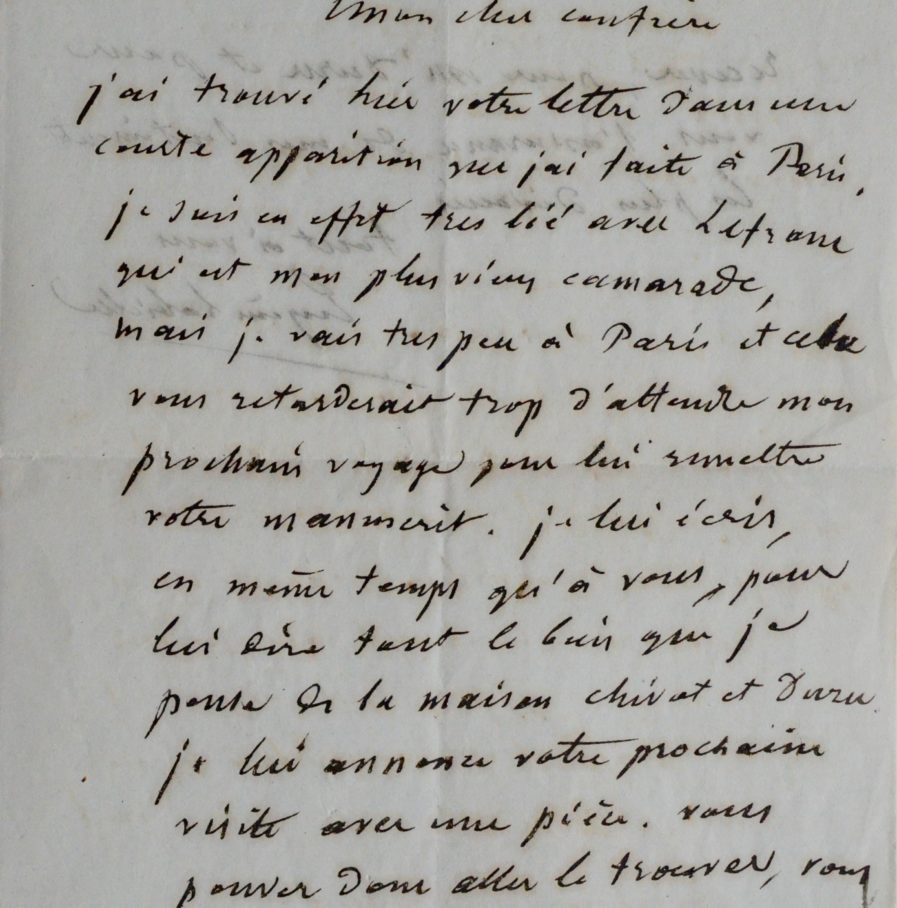 Mon cher confrère
j'ai trouvé hier votre lettre dans une
courte apparition que j'ai faite à Paris,
je suis en effet tres lié avec Lefranc
qui est mon plus vieux camarade,
mais je vais tres peu à Paris et cela
vous retarderait trop d'attendre mon
prochain voyage pour lui remettre
votre manuscrit. je lui écris,
en même temps qu'à vous, pour
lui dire tout le bien que je
pense de la maison chivot et Duru
je lui annonce votre prochaine
visite avec une pièce. vous
pouvez donc aller le trouver, vous